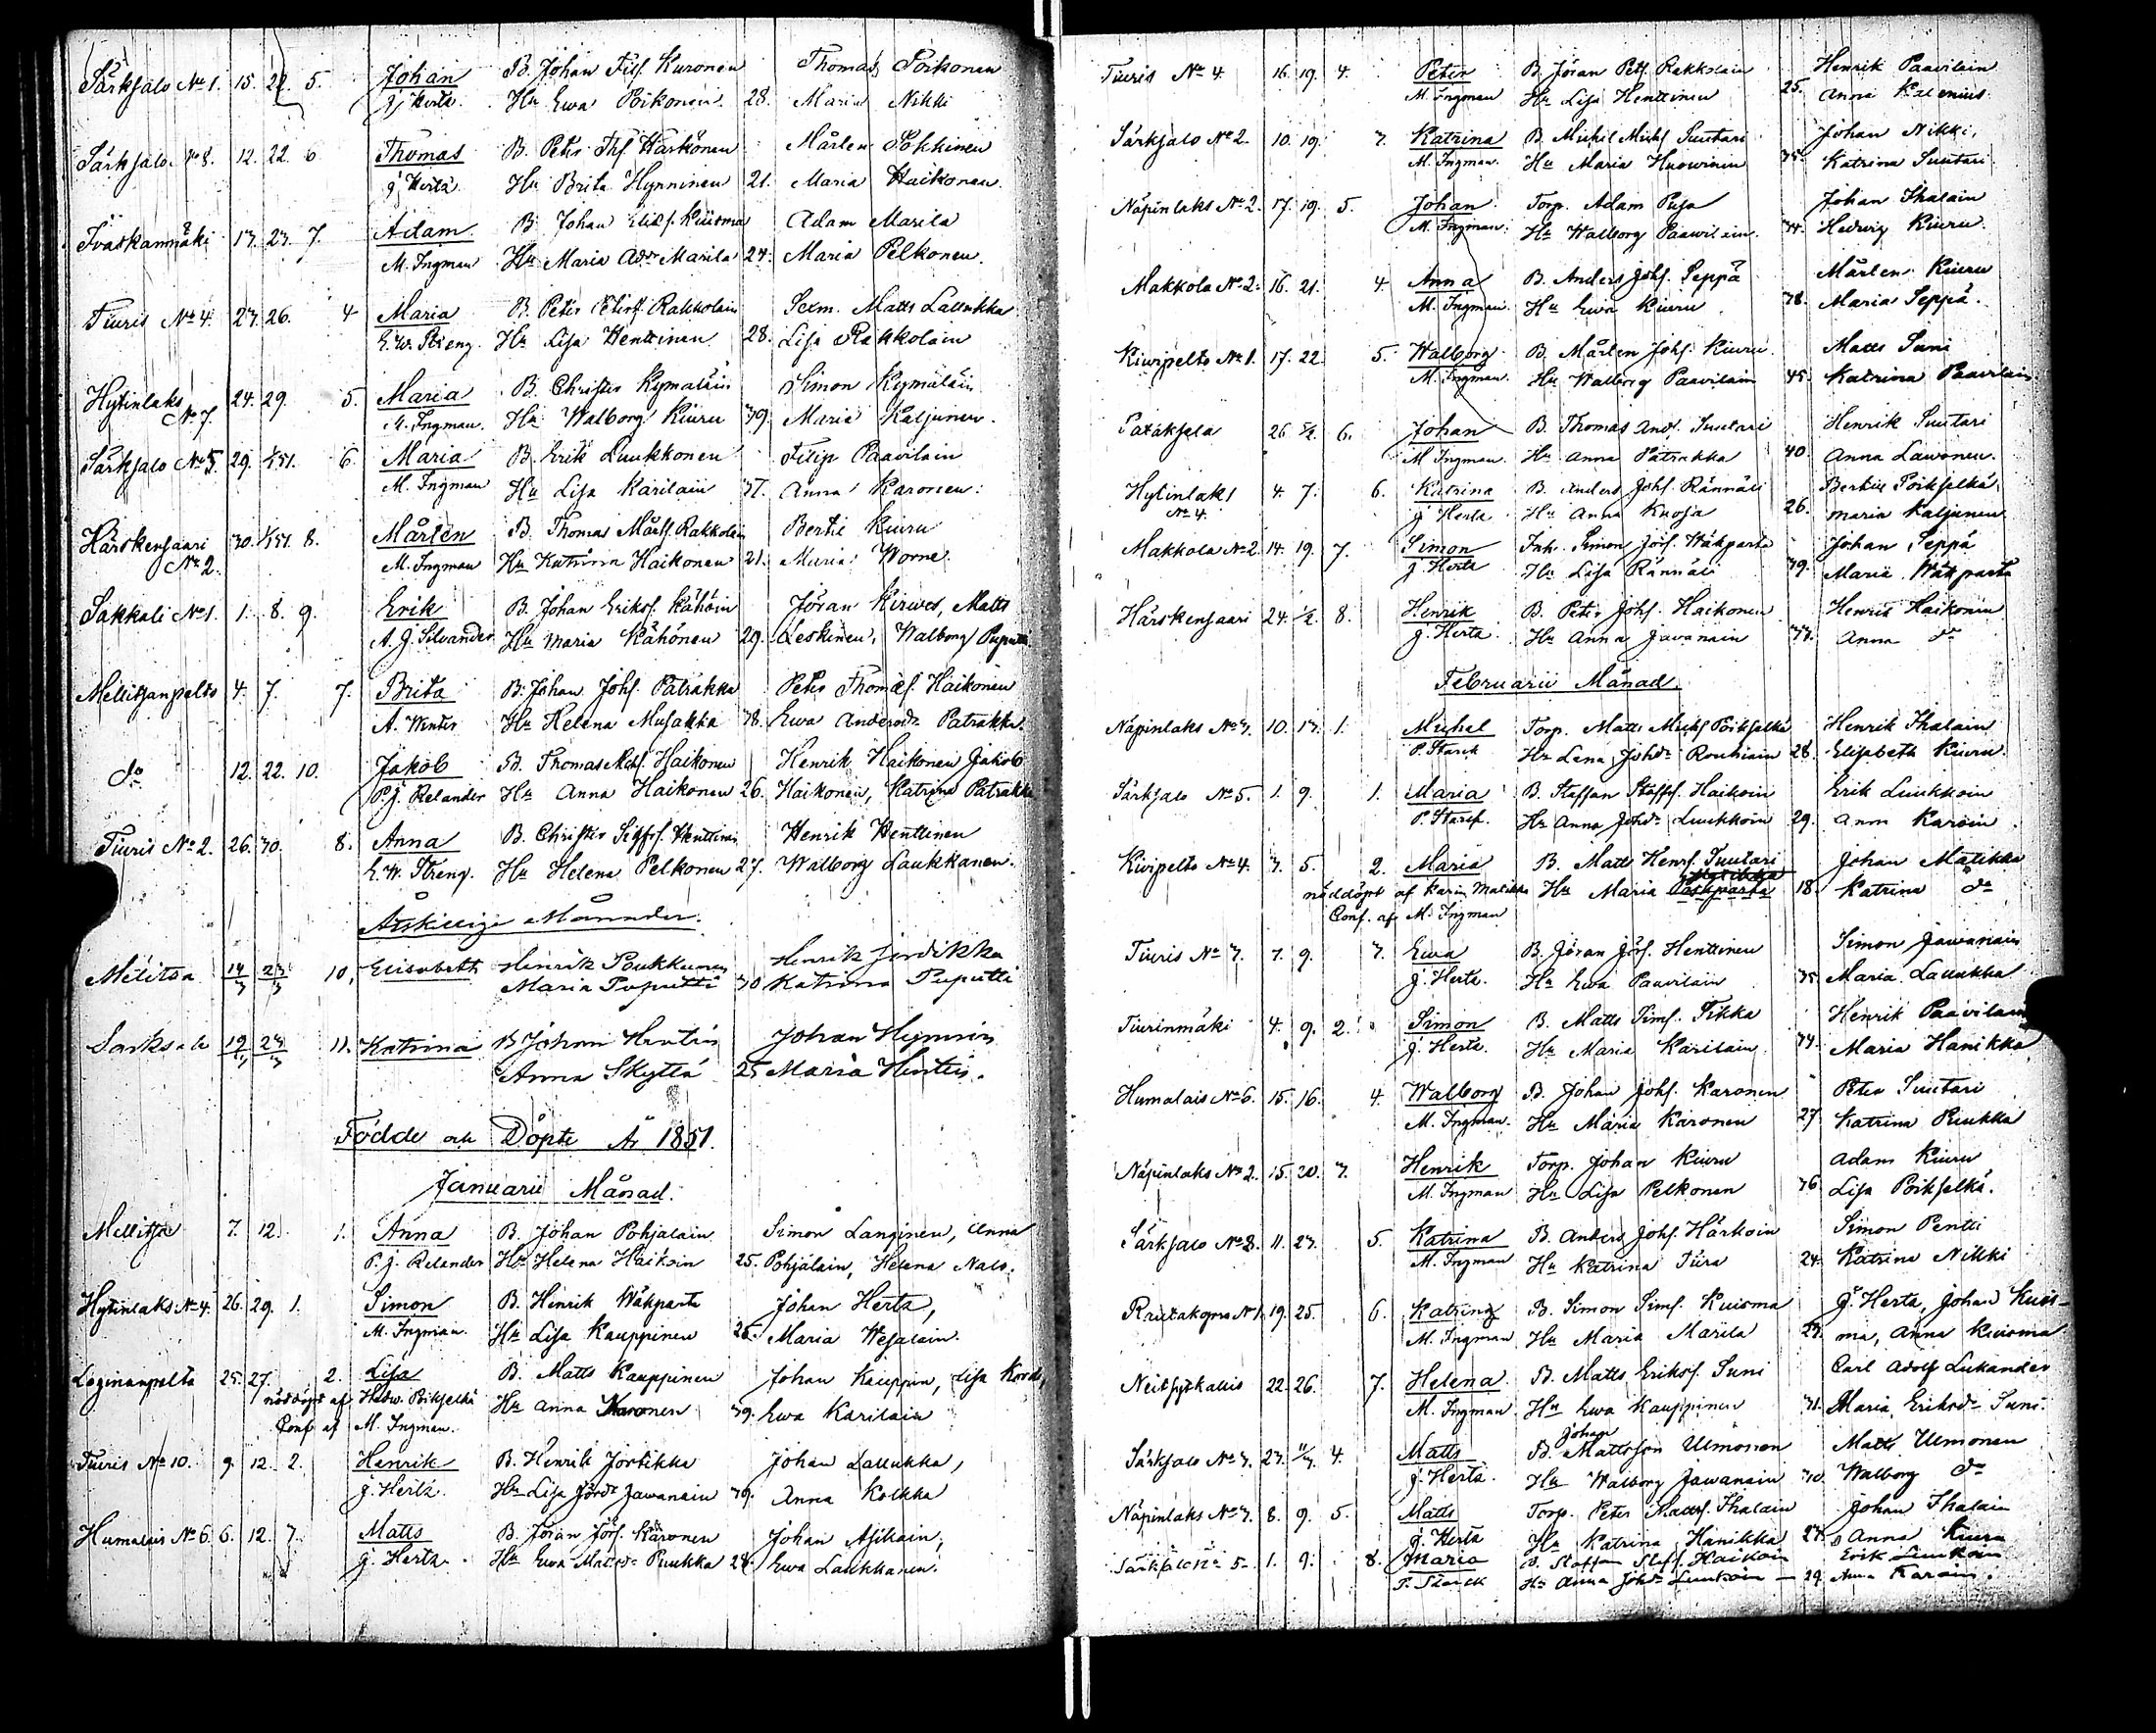 Särksalo No 1. 15. 22. 5. Johan B. Johan Filf. Kuronen Thomas Poikonen
J. Herta. Hu Ewa Poikonen 28. Maria Nikki
Särksalo No 8. 12. 22. 6. Thomas B. Peter Thf. Härkönen Mårten Sokkinen
J. Herta. Hu Brita Hynninen 21. Maria Haikonen.
13. 23. 7. Adam B. Johan Eliaf. Kuisma Adam Marila
M. Ingman Hu Maria Adr Marila 24. Maria Pelkonen.
Tiuris No 4. 23. 26. 4 Maria B. Peter Petersf. Rakkolain Matts Laukka
E. W. Streng. Hu Lisa Henttinen 28. Lisa Rakkolain
Hytinlaks 24. 29. 5. Maria B. Christer Kymaläin Simon Kymäläin
No 7. M. Ingman. Hu Walborg Kiuru 39. Maria Kaljunen.
Särksalo No 5. 29. 1/1 51. 6. Maria B. Erik Luukkonen Filip Paavilain
M. Ingman Hu Lisa Karilain 37. Anna Karonen.
Härskensaari 30. 1/1 51. 8. Mårten B. Thomas Mårtf. Rakkolain Bertil Kiuru
No 2. M. Ingman Hu Katrina Haikonen 21. Maria Worne.
Sakkali No 1. 1. 8. 9. Erik B. Johan Eriksf. Kähöin Jöran Kirwes, Matts
A. J. Silvander Hu Maria Kähönen 29. Leskinen, Walborg Puputti
Mellitsanpelto 4. 7. 7. Brita B. Johan Johf. Patrakka Peter Thomasf. Haikonen
A. Winter Hu Helena Musakka 38. Ewa Andersdr Patrakka.
do 12. 22. 10. Jakob B. Thomas Haikonen Henrik Haikonen Jakob
P. J. Relander Hu Anna Haikonen 26. Haikonen, Katrina Patrakka
Tiuris No 2. 26. 30. 8. Anna B. Christer Henttinen Henrik Henttinen
E. W. Streng. Hu Helena Pelkonen 27. Walborg Laukkanen.
Åtskillige Månader.
Melitsa 14/3 23/3 10, Elisabeth Henrik Poukkunen Henrik Jordikka
Maria Puputti 30 Katrina Puputti
Särksalo 19/3 23/3 11. Katrina B Johan Hentin Johan Hynnin
Anna Skyttä 25 Maria Hentin.
Födde och Döpte År 1851.
Januarii Månad.
Mellitsa 7. 12. 1. Anna B. Johan Pohjalain Simon Langinen, Anna
P. J. Relander Hu Helena Haikoin 25. Pohjalain, Helena Nalo.
Hytinlaks No 4. 26. 29. 1. Simon B. Henrik Wäkparta Johan Herta,
M. Ingman. Hu Lisa Kauppinen 26. Maria Wesalain.
Loginanpelto 25. 27. 2. Lisa B. Matts Kauppinen Johan Kauppin, Lisa
nöddöpt af Hedw. Poikselkä Hu Anna Karonen 39. Ewa Karilain
Conf. af M. Ingman.
Tiuris No 10. 9. 12. 2. Henrik B. Henrik Jortikka Johan Laukka,
J. Herta. Hu Lisa Jördr Jawanain 39. Anna Kolkka
Humalais No 6 6. 12. 3. Matts B. Jöran Jörf. Karonen Johan Asikain,
J. Herta. Hu Ewa Mattsdr Puukka 24. Ewa Laukkanen.
Tiuris No 4. 16. 19. 4. Peter B. Jöran Petf. Rakkolain Henrik Paavilain
M. Ingman Hu Lisa Henttinen 25. Anna
Särksalo No 2. 10. 19. 3. Katrina B. Michel Michf Suutari Johan Nikki,
M. Ingman. Hu Maria Huowinen 35. Katrina Suutari
Näpinlaks No 2. 17. 19. 5. Johan Torp. Adam Pusa Johan Ihalain
M. Ingman. Hu Walborg Paawilain. 34. Hedwig Kiuru.
Makkola No 2. 16. 21. 4. Anna B. Anders Johf. Seppä Mårten Kiuru
M. Ingman. Hu Ewa Kiuru 38. Maria Seppä.
Kiwipelto No 1. 17. 22. 5. Walborg B. Mårten Johf. Kiuru. Matts Suni
M. Ingman. Hu Walborg Paavilain 45. Katrina Paavilain
26 5/2. 6. Johan B. Thomas Andf. Suutari Henrik Suutari
M Ingman. Hu Anna Patrakka 40. Anna Lawonen.
Hytinlaks 4. 7. 6. Katrina B. Anders Johf. Rännäli Bertil Poikselkä,
No 4. J Herta Hu Anna Kuosa 26. Maria Kaljunen
Makkola No 2. 14. 19. 7. Simon Inh. Simon Jörf. Wäkparta Johan Seppä
J Herta Hu Lisa Rännäli 39. Maria Wäkparta
Härskensaari 24. 1/2. 8. Henrik B. Peter Johf. Haikonen Henrik Haikonen
J. Herta. Hu Anna Jawanain 33. Anna do
Februarii Månad.
Näpinlaks No 3. 10. 13. 1. Michel Torp. Matts Michf Poikselkä Henrik Ihalain
P. Starck Hu Lena Johdr Rouhiain 28. Elisabeth Kiuru.
Särksalo No 5. 1. 9. 1. Maria B. Staffan Stafff. Haikoin Erik Luukkoin
P. Starck. Hu Anna Johdr Luukkoin 29. Anna Karoin.
Kiwipelto No 4. 3. 5. 2. Maria B. Matts Henrf. Suutari Johan Matikka
nöddöpt af Karin Matikka Hu Maria Matikka 18. Katrina do
Conf. af M. Ingman
Tiuris No 3. 7. 9. 3. Ewa B. Jöran Jörf. Henttinen Simon Jawanain
J. Herta. Hu Ewa Paavilain 35. Maria Laukka
Tiurinmäki 4. 9. 2. Simon B. Matts Simf. Tikka Henrik Paavilain
J. Herta. Hu Maria Karilain 34. Maria Hanikka
Humalais No 6. 15. 16. 4. Walborg B. Johan Johf. Karonen Peter Suutari
M. Ingman. Hu Maria Karonen 27 Katrina Puukka
Näpinlaks No 2. 15. 20. 3. Henrik Torp. Johan Kiuru Adam Kiuru
M. Ingman Hu Lisa Pelkonen 36 Lisa Poikselkä.
Särksalo No 8. 11. 23. 5. Katrina B. Anders Johf. Härkoin Simon Pentti
M. Ingman Hu Katrina Tiira 24. Katrina Nikki
No 1. 19. 25. 6. Katrina B. Simon Simf. Kuisma J. Herta, Johan Kuis-
M. Ingman Hu Maria Marila 23. ma, Anna Kuisma
Neitsytkallis 22. 26. 7. Helena B. Matts Eriksf. Suni Carl Adolf Lukander
M. Ingman Hu Ewa Kauppinen 31. Maria Eriksdr Suni.
Johan
Särksalo No 3. 23. 11/3. 4. Matts B. Mattsson Ulmonen Matts Ulmonen
J. Herta. Hu Walborg Jawanain 30. Walborg do
Näpinlaks No 3. 8. 9. 5. Matts Torp. Peter Mattsf. Ihalain Johan Ihalain
J. Herta Hu Katrina Hanikka 27. Anna Kiuru
Särksalo No 5. 1. 9. 8. Maria B. Staffan Staff. Haikoin Erik Luukoin
P. Starck Hu Anna Johdr Luukoin — 29. Anna Karoin.